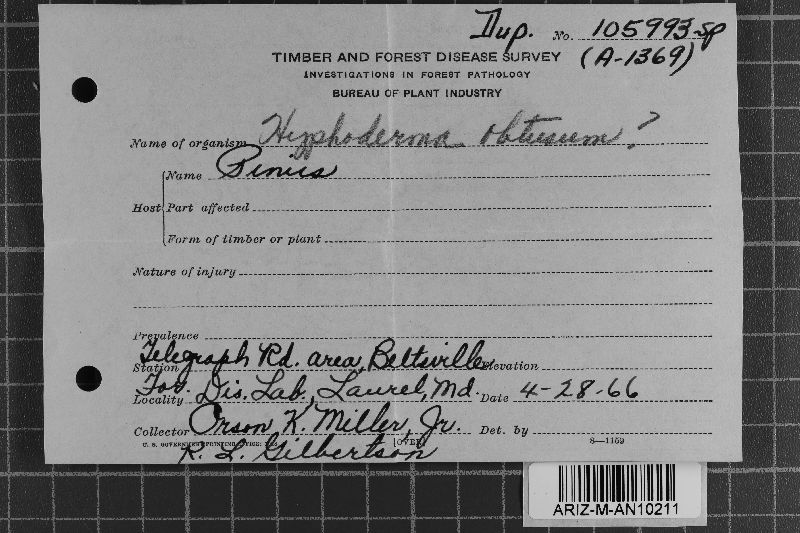 Dup. No. 105993-Sp
TIMBER AND FOREST DISEASE SURVEY (A-1369)
INVESTIGATIONS IN FOREST PATHOLOGY
BUREAU OF PLANT INDUSTRY
Name of organism Hyphoderma obtusum?
Name Pinus
Host Part affected
Form of timber or plant
Nature of injury
Prevalence
Station Telegraph Rd. area, Beltsville, Elevation
Locality For. Dis. Lab., Laurel, Md. Date 4-28-66
Collector Orson K. Miller, Jr. Det. by
U. S. GOVERNMENT PRINTING OFFICE: [OVER] 8—1159
R. L. Gilbertson
ARIZ-M-AN10211